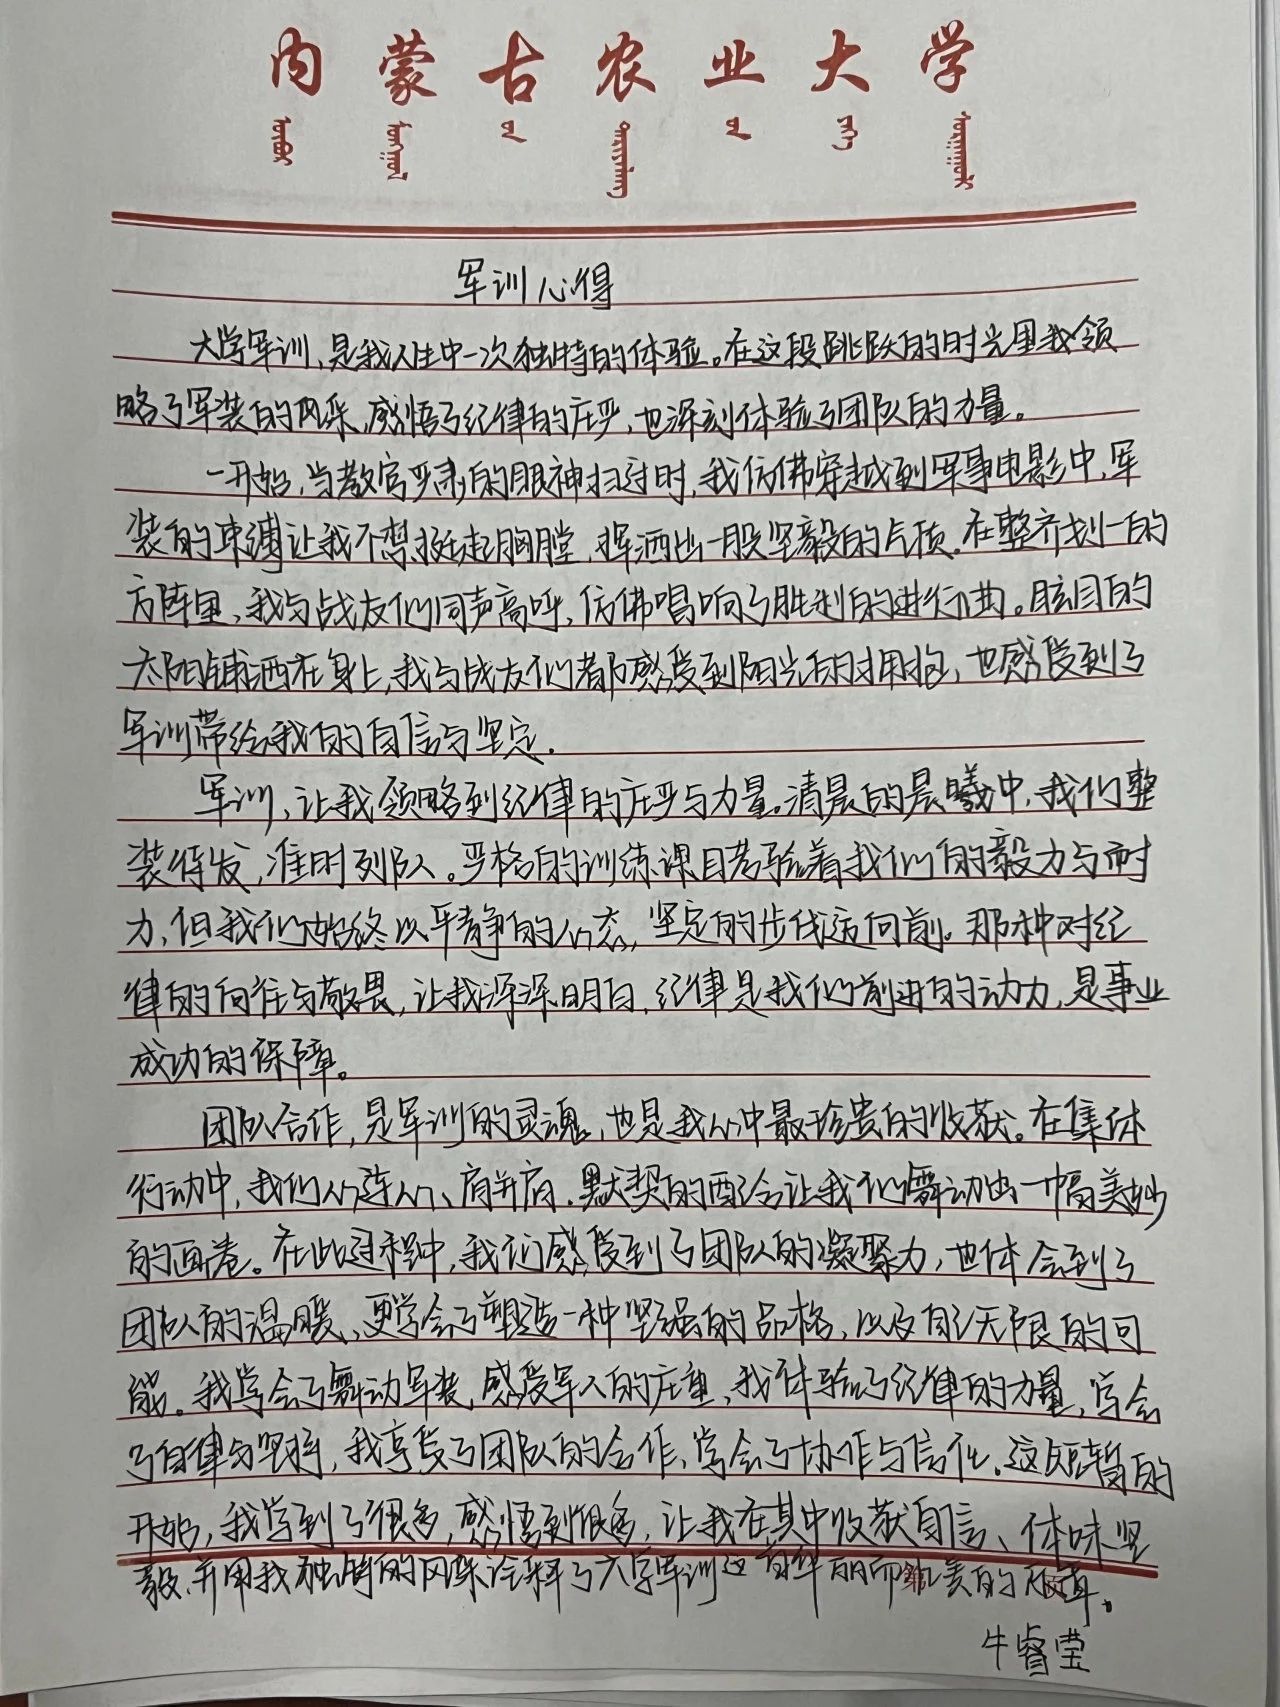 内蒙古农业大学
军训心得
大学军训，是我人生中一次独特的体验。在这段跳跃的时光里我领
略了军装的风采，感悟了纪律的庄严，也深刻体验了团队的力量。
一开始，当教官严肃的眼神扫过时，我仿佛穿越到军事电影中，军
装的束缚让我不禁挺起胸膛，挥洒出一股坚毅的气质。在整齐划一的
方阵里，我与战友们同声高呼，仿佛唱响了胜利的进行曲。眩目的
太阳铺洒在身上，我与战友们都感受到阳光的拥抱，也感受到了
军训带给我们的自信与坚定。
军训，让我领略到纪律的庄严与力量。清晨的晨曦中，我们整
装待发，准时列队。严格的训练课目考验着我们的毅力与耐
力，但我们始终以平静的心态，坚定的步伐迈向前。那种对纪
律的向往与敬畏，让我深深明白，纪律是我们前进的动力，是事业
成功的保障。
团队合作，是军训的灵魂，也是我心中最珍贵的收获。在集体
行动中，我们心连心、肩并肩，默契的配合让我们舞动出一幅美妙
的画卷。在此过程中，我们感受到了团队的凝聚力，也体会到了
团队的温暖，更学会了塑造一种坚强的品格，以及自己无限的可
能。我学会了舞动军装，感受军人的庄重，我体验了纪律的力量，学会
了自律与坚持，我享受了团队的合作，学会了协作与信任。这短暂的
开始，我学到了很多，感悟到很多，让我在其中收获自信、体味坚
毅，并用我独特的风采诠释了大学军训这首华丽而 美的乐章。
牛睿莹